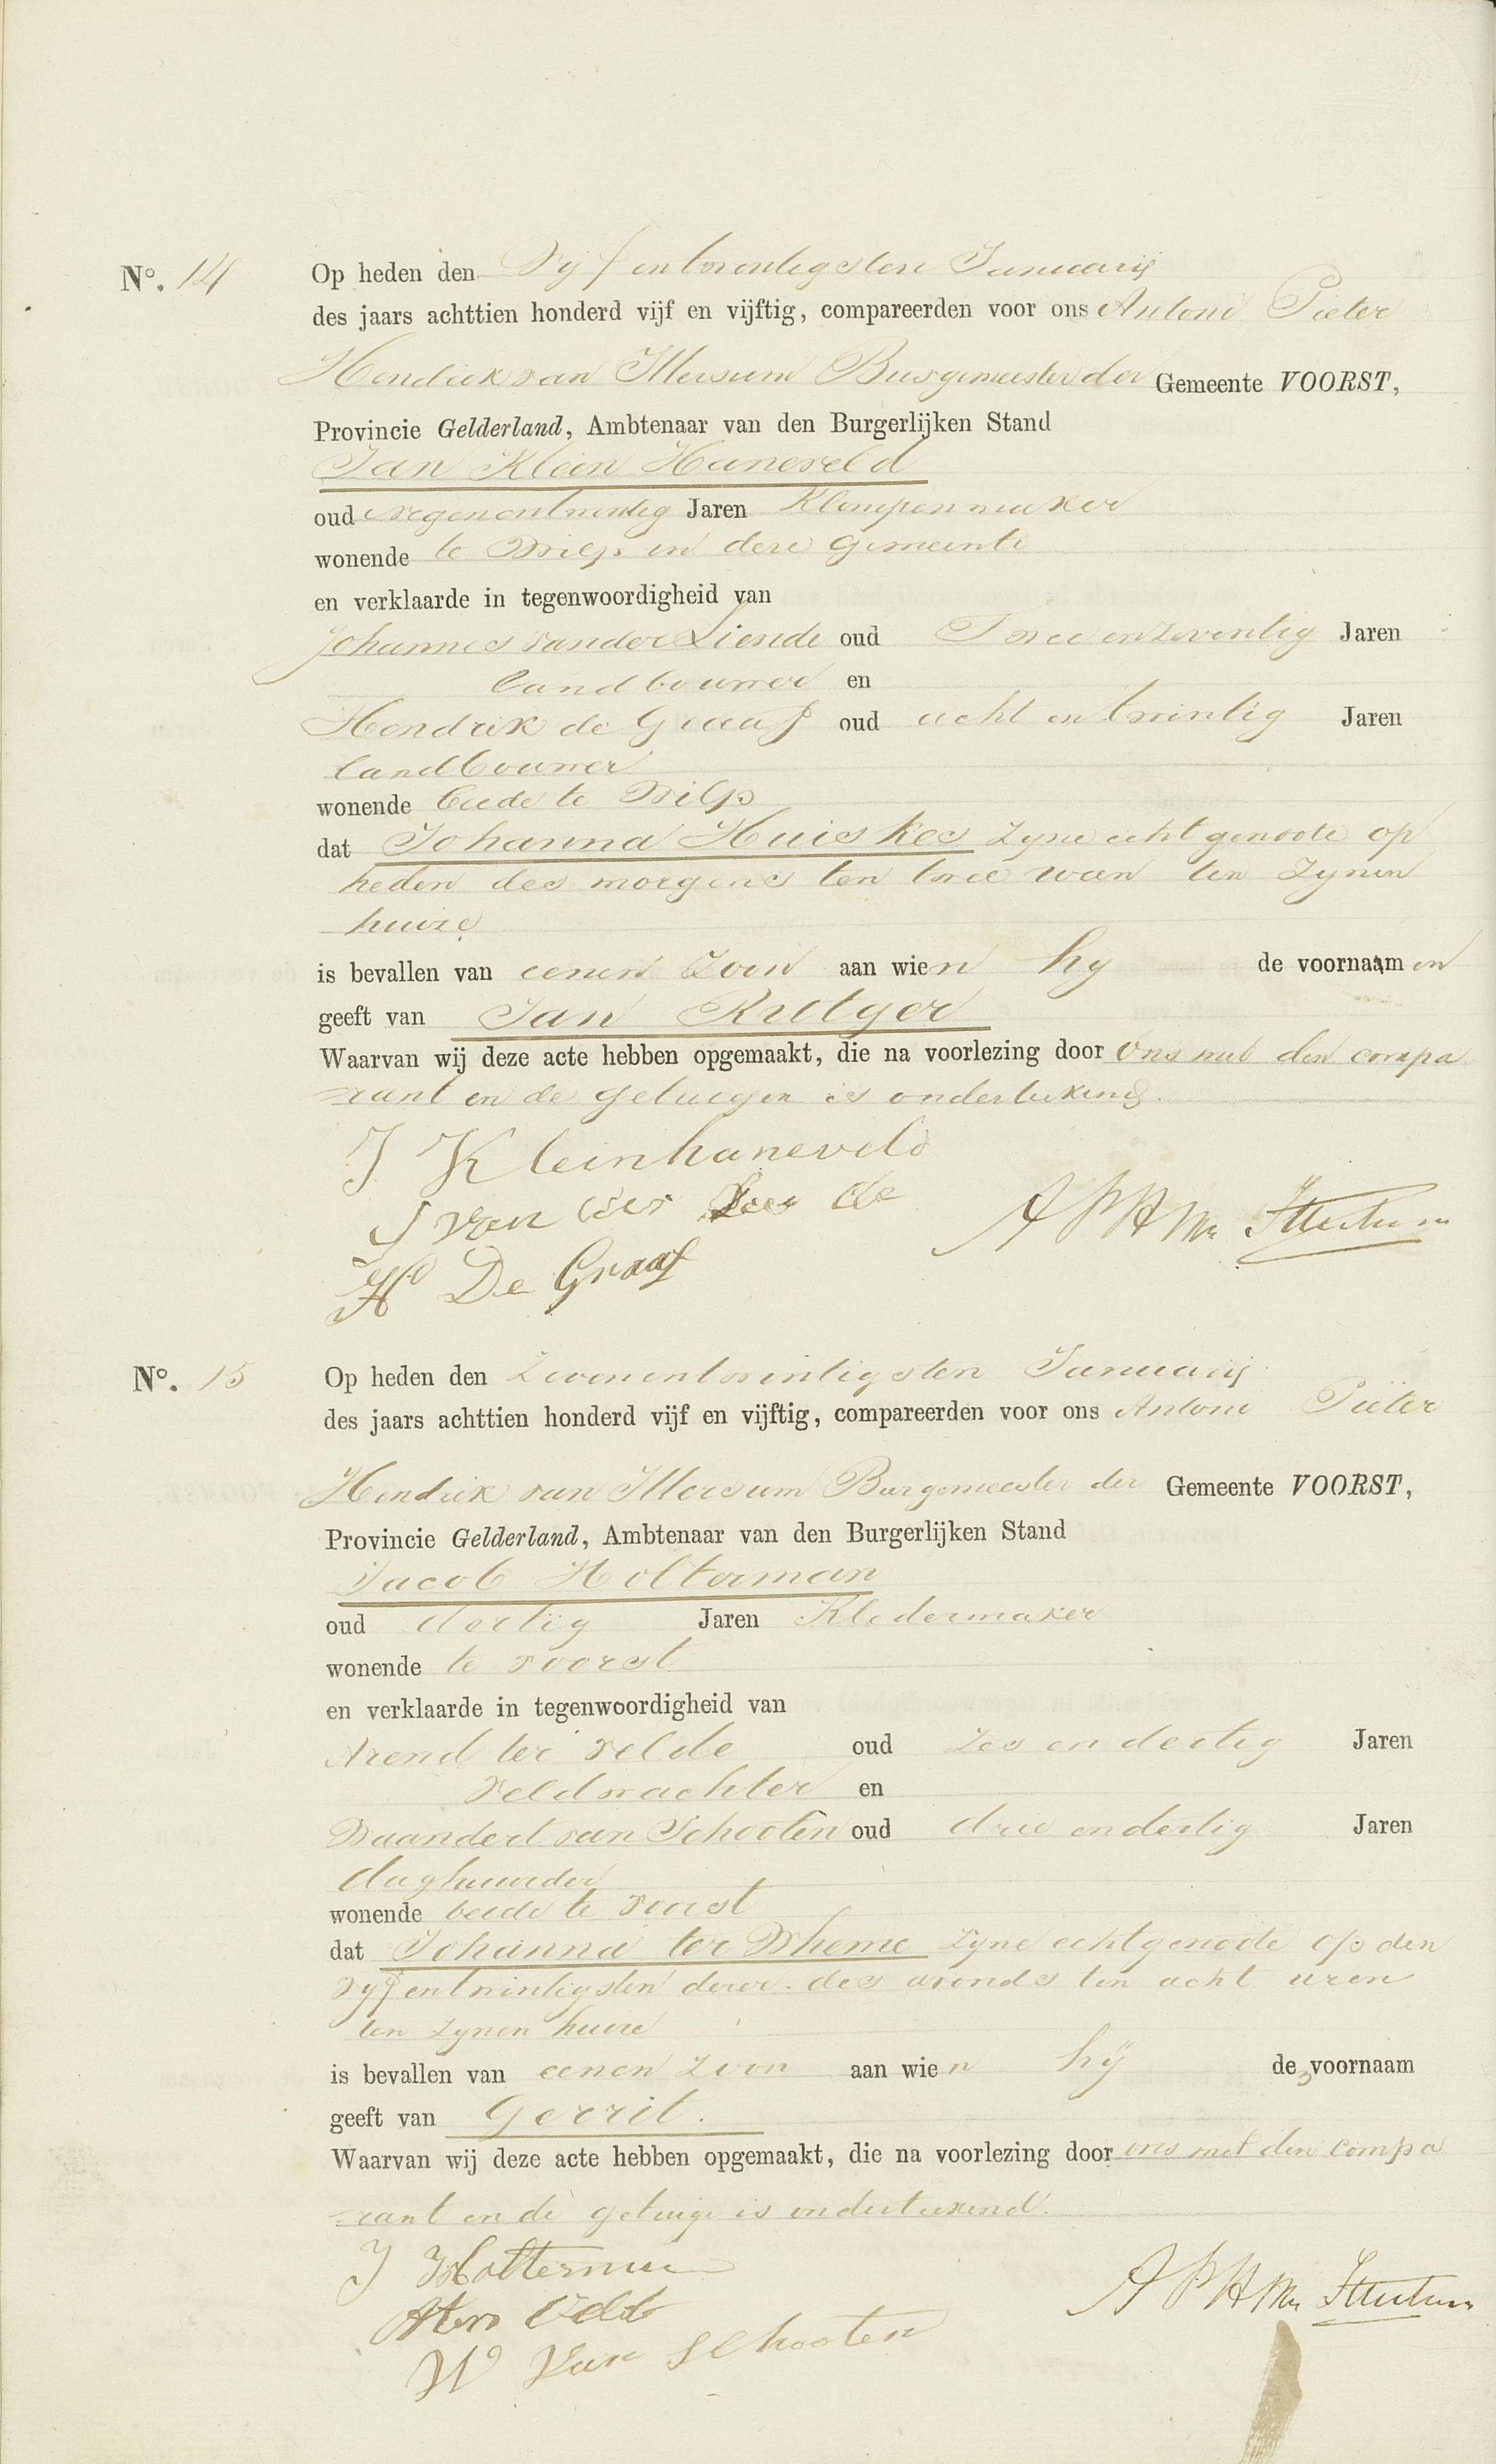 N°. 14
Op heden den Vijf en twentigsten Januarij
des jaars achttien honderd vijf en vijftig, compareerden voor ons Antoni Pieter
Hendrik van Ittersum Burgemeester der Gemeente VOORST,
Provincie Gelderland, Ambtenaar van den Burgerlijken Stand
Jan Klein Haneveld
oud negenentwintig Jaren Klompenmaker
wonende te Wilp in dere Gemeente
en verklaarde in tegenwoordigheid van
Johannes van der Liende oud Twee en zeventig Jaren
landbouwer en
Hendrik de Graaf oud acht en twintig Jaren
landbouwer
wonende beide te Wilp
dat Johanna Huiskes zyne echtgenoote op
heden des morgens ten twee uren ten zynen
huize
is bevallen van eenen Zoon aan wien hy de voornaamen
geeft van Jan Rutger
Waarvan wij deze acte hebben opgemaakt, die na voorlezing door ons met den compa
rant en de getuigen is onderteekend.
J Kleinhaneveld
J van der Lee de
H D De Graaf
A P H van Ittersum
N°. 15
Op heden den Zevenentwintigsten Januarij
des jaars achttien honderd vijf en vijftig, compareerden voor ons Antoni Pieter
Hendrik van Ittersum Burgemeester der Gemeente VOORST,
Provincie Gelderland, Ambtenaar van den Burgerlijken Stand
Jacob Holterman
oud dertig Jaren Kledermaker
wonende te Voorst
en verklaarde in tegenwoordigheid van
Arend ter Velde oud Zes en dertig Jaren
Veldwachter en
Waandert van Schooten oud drie en dertig Jaren
daghuurder
wonende beide te Voorst
dat Johanna ter Wheme zyne echtgenoote op den
vyf entwintigsten dezer des avonds ten acht uren
ten zynen huize
is bevallen van eenen Zoon aan wien hij de voornaam
geeft van Gerrit.
Waarvan wij deze acte hebben opgemaakt, die na voorlezing door ons met den compa
rant en de getuige is onderteekend.
J Holterman
A ter Velde
W Van Schooten
A P H van Ittersum